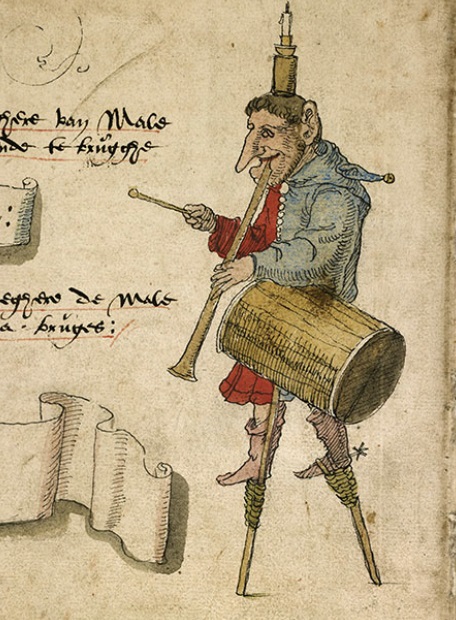 here van Male
nde te brugghe
eghers de Male
a · bruges :